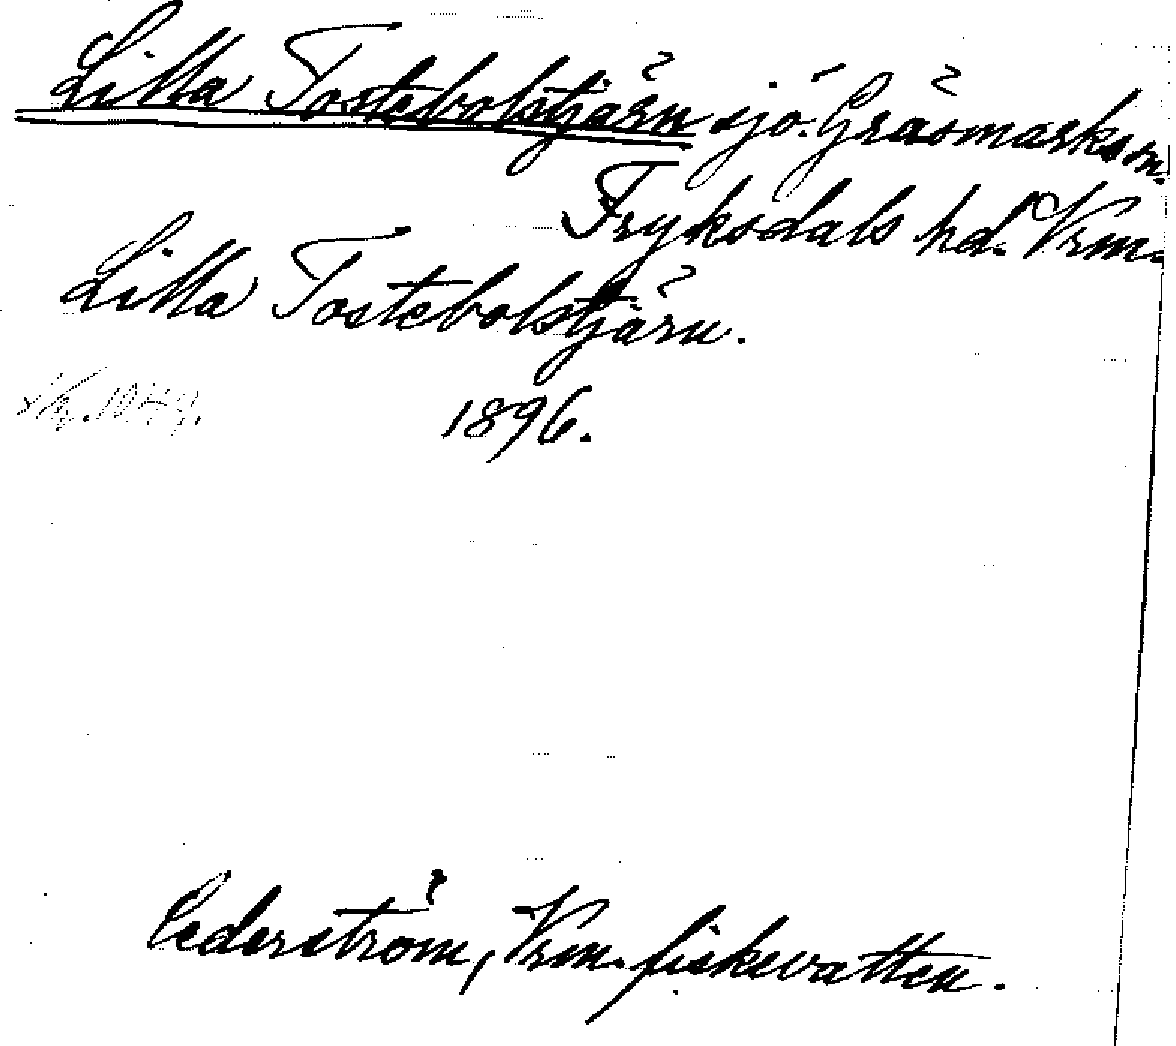 Lilla Tostebolstjärn sjö. Gräsmarks sn.
Fryksdals hd. Vrm.
Lilla Tostebolstjärn.
1896.
Cederström, Vrm. fiskevatten.